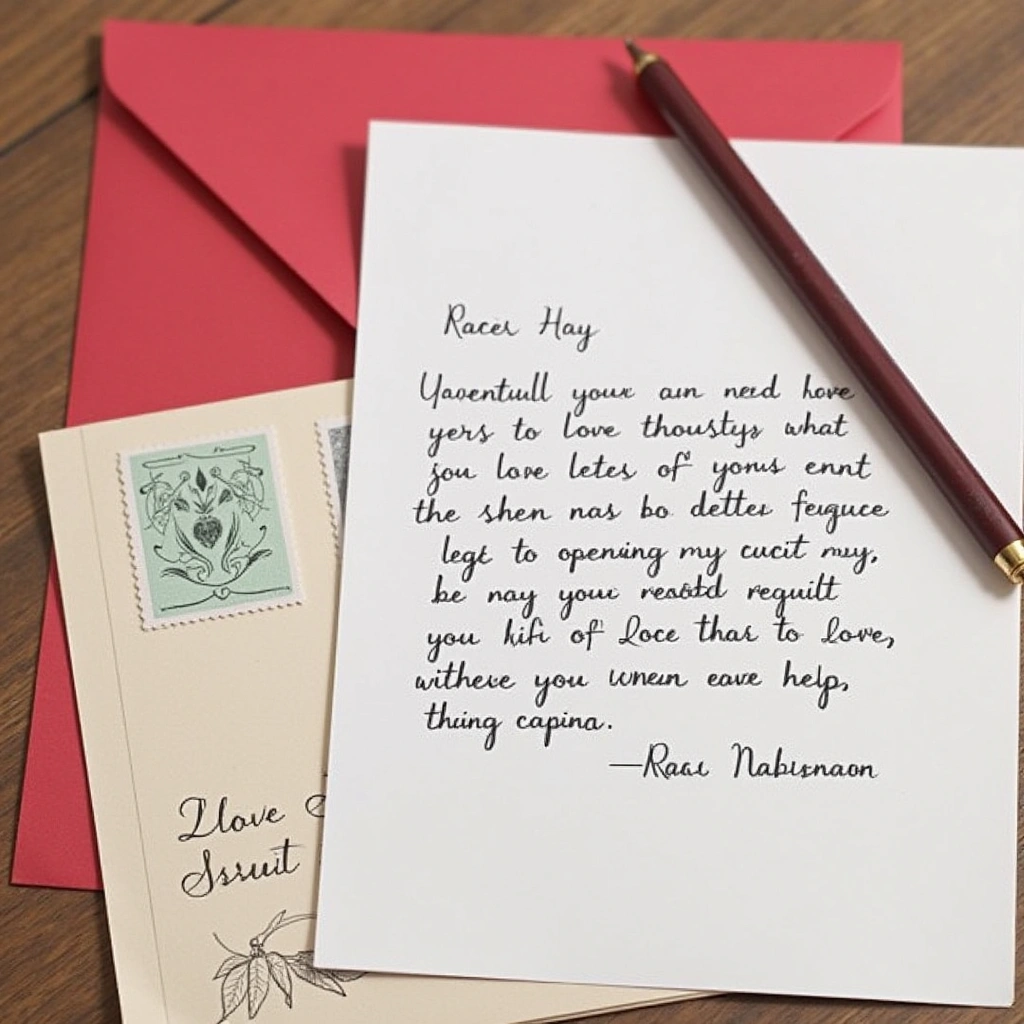 Racer Hay
Yaventull your am need hove
yers to love thoustys what
you love letes of yorus ennt
the shen nas bo detter feguce
legt to opening my cucit may,
be nay your reguilt
you hifi of Loce thas to love,
withere you unean eave help,
thing capina.
—Raae Nabusnaon
Ilove
Ssruit